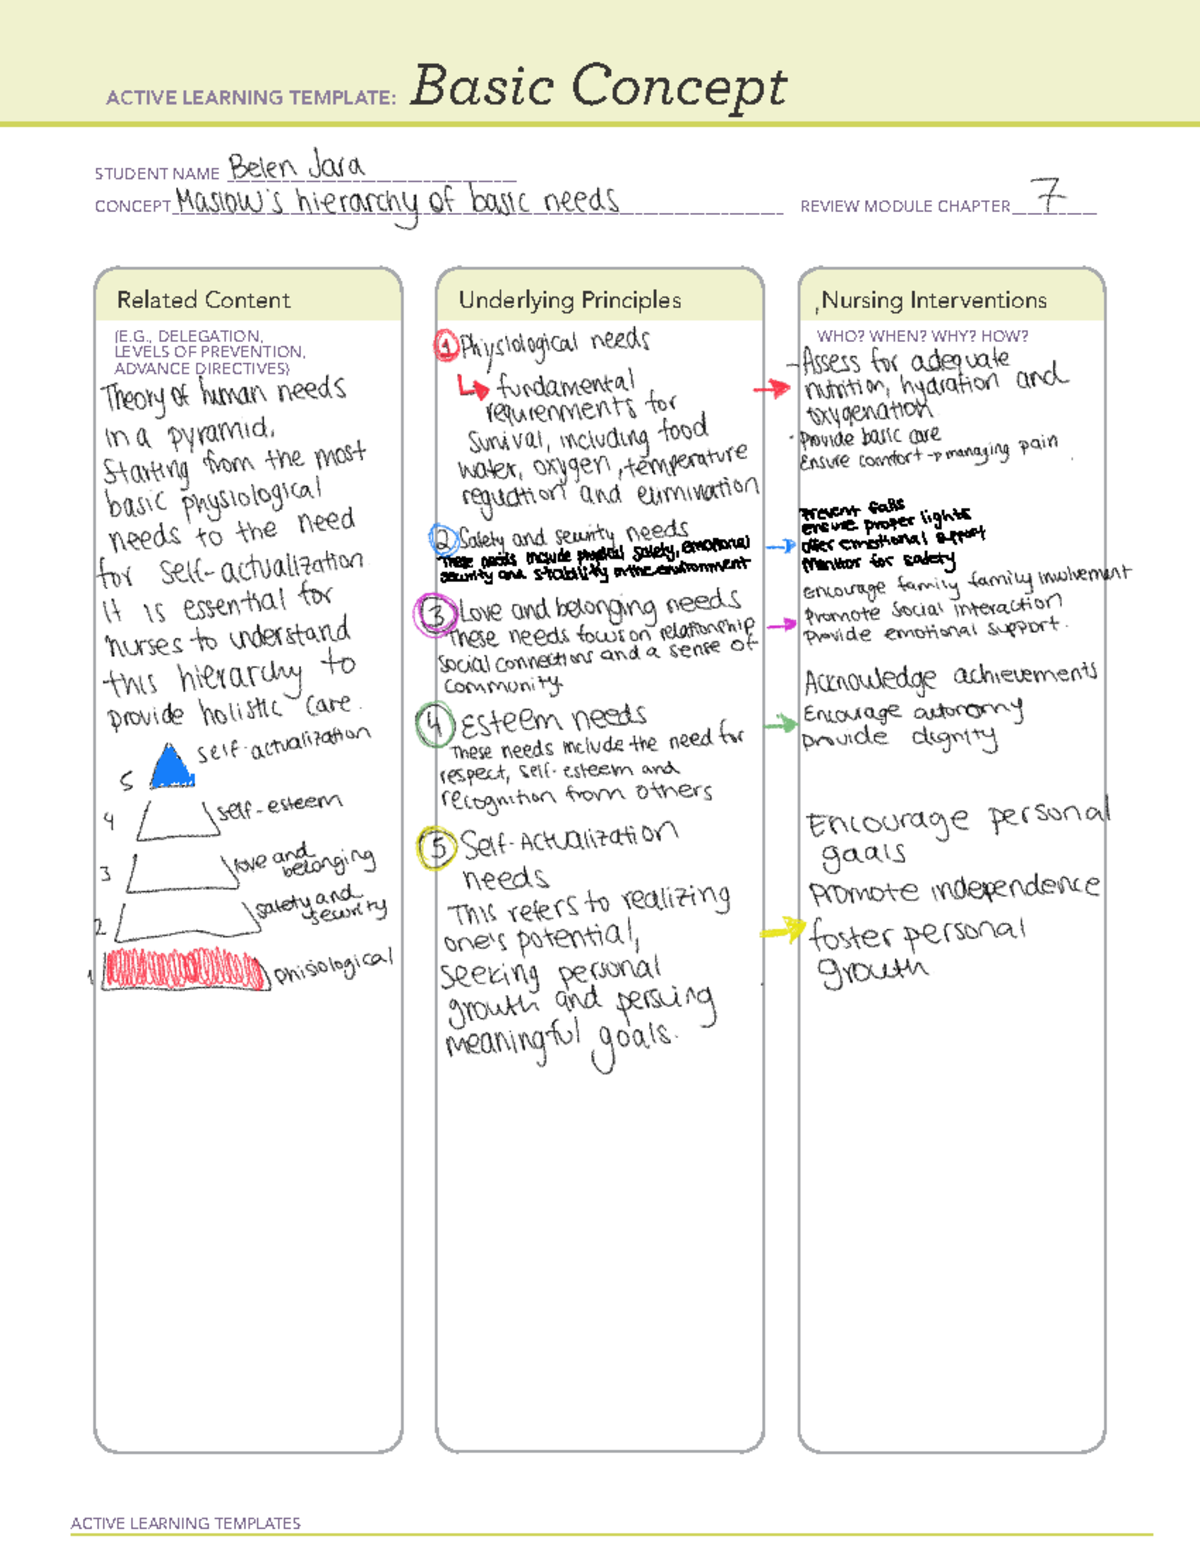 ACTIVE LEARNING TEMPLATE: Basic Concept
STUDENT NAME Belen Jara
CONCEPT Maslow's hierarchy of basic needs REVIEW MODULE CHAPTER 7
Related Content
(E.G., DELEGATION,
LEVELS OF PREVENTION,
ADVANCE DIRECTIVES)
Theory of human needs
in a pyramid.
Starting from the most
basic physiological
needs to the need
for self-actualization
It is essential for
nurses to understand
this hierarchy to
provide holistic care.
self-actualization
5
4 self-esteem
3 love and
belonging
2 safety and
security
1 phisological
Underlying Principles
1 Physiological needs
fundamental
requirenments for
Survival, including food
water, oxygen, temperature
reguation and elimination
2 Safety and security needs
These needs include physical safety, emotional
security and stability in the environment
3 Love and belonging needs
These needs focus on relationship
social connections and a sense of
community
4 Esteem needs
These needs include the need for
respect, self-esteem and
recognition from others
5 Self-Actualization
needs
This refers to realizing
one's potential,
seeking personal
growth and persuing
meaningful goals.
Nursing Interventions
WHO? WHEN? WHY? HOW?
-Assess for adequate
nutrition, hydration and
oxygenation
- Provide basic care
Ensure comfort → managing pain
Prevent falls
ensure proper lights
offer emotional support
Monitor for safety
encourage family family involvement
Promote social interaction
Provide emotional support.
Acknowledge achievements
Encourage autonomy
provide dignity
Encourage personal
goals
Promote independence
foster personal
growth
ACTIVE LEARNING TEMPLATES